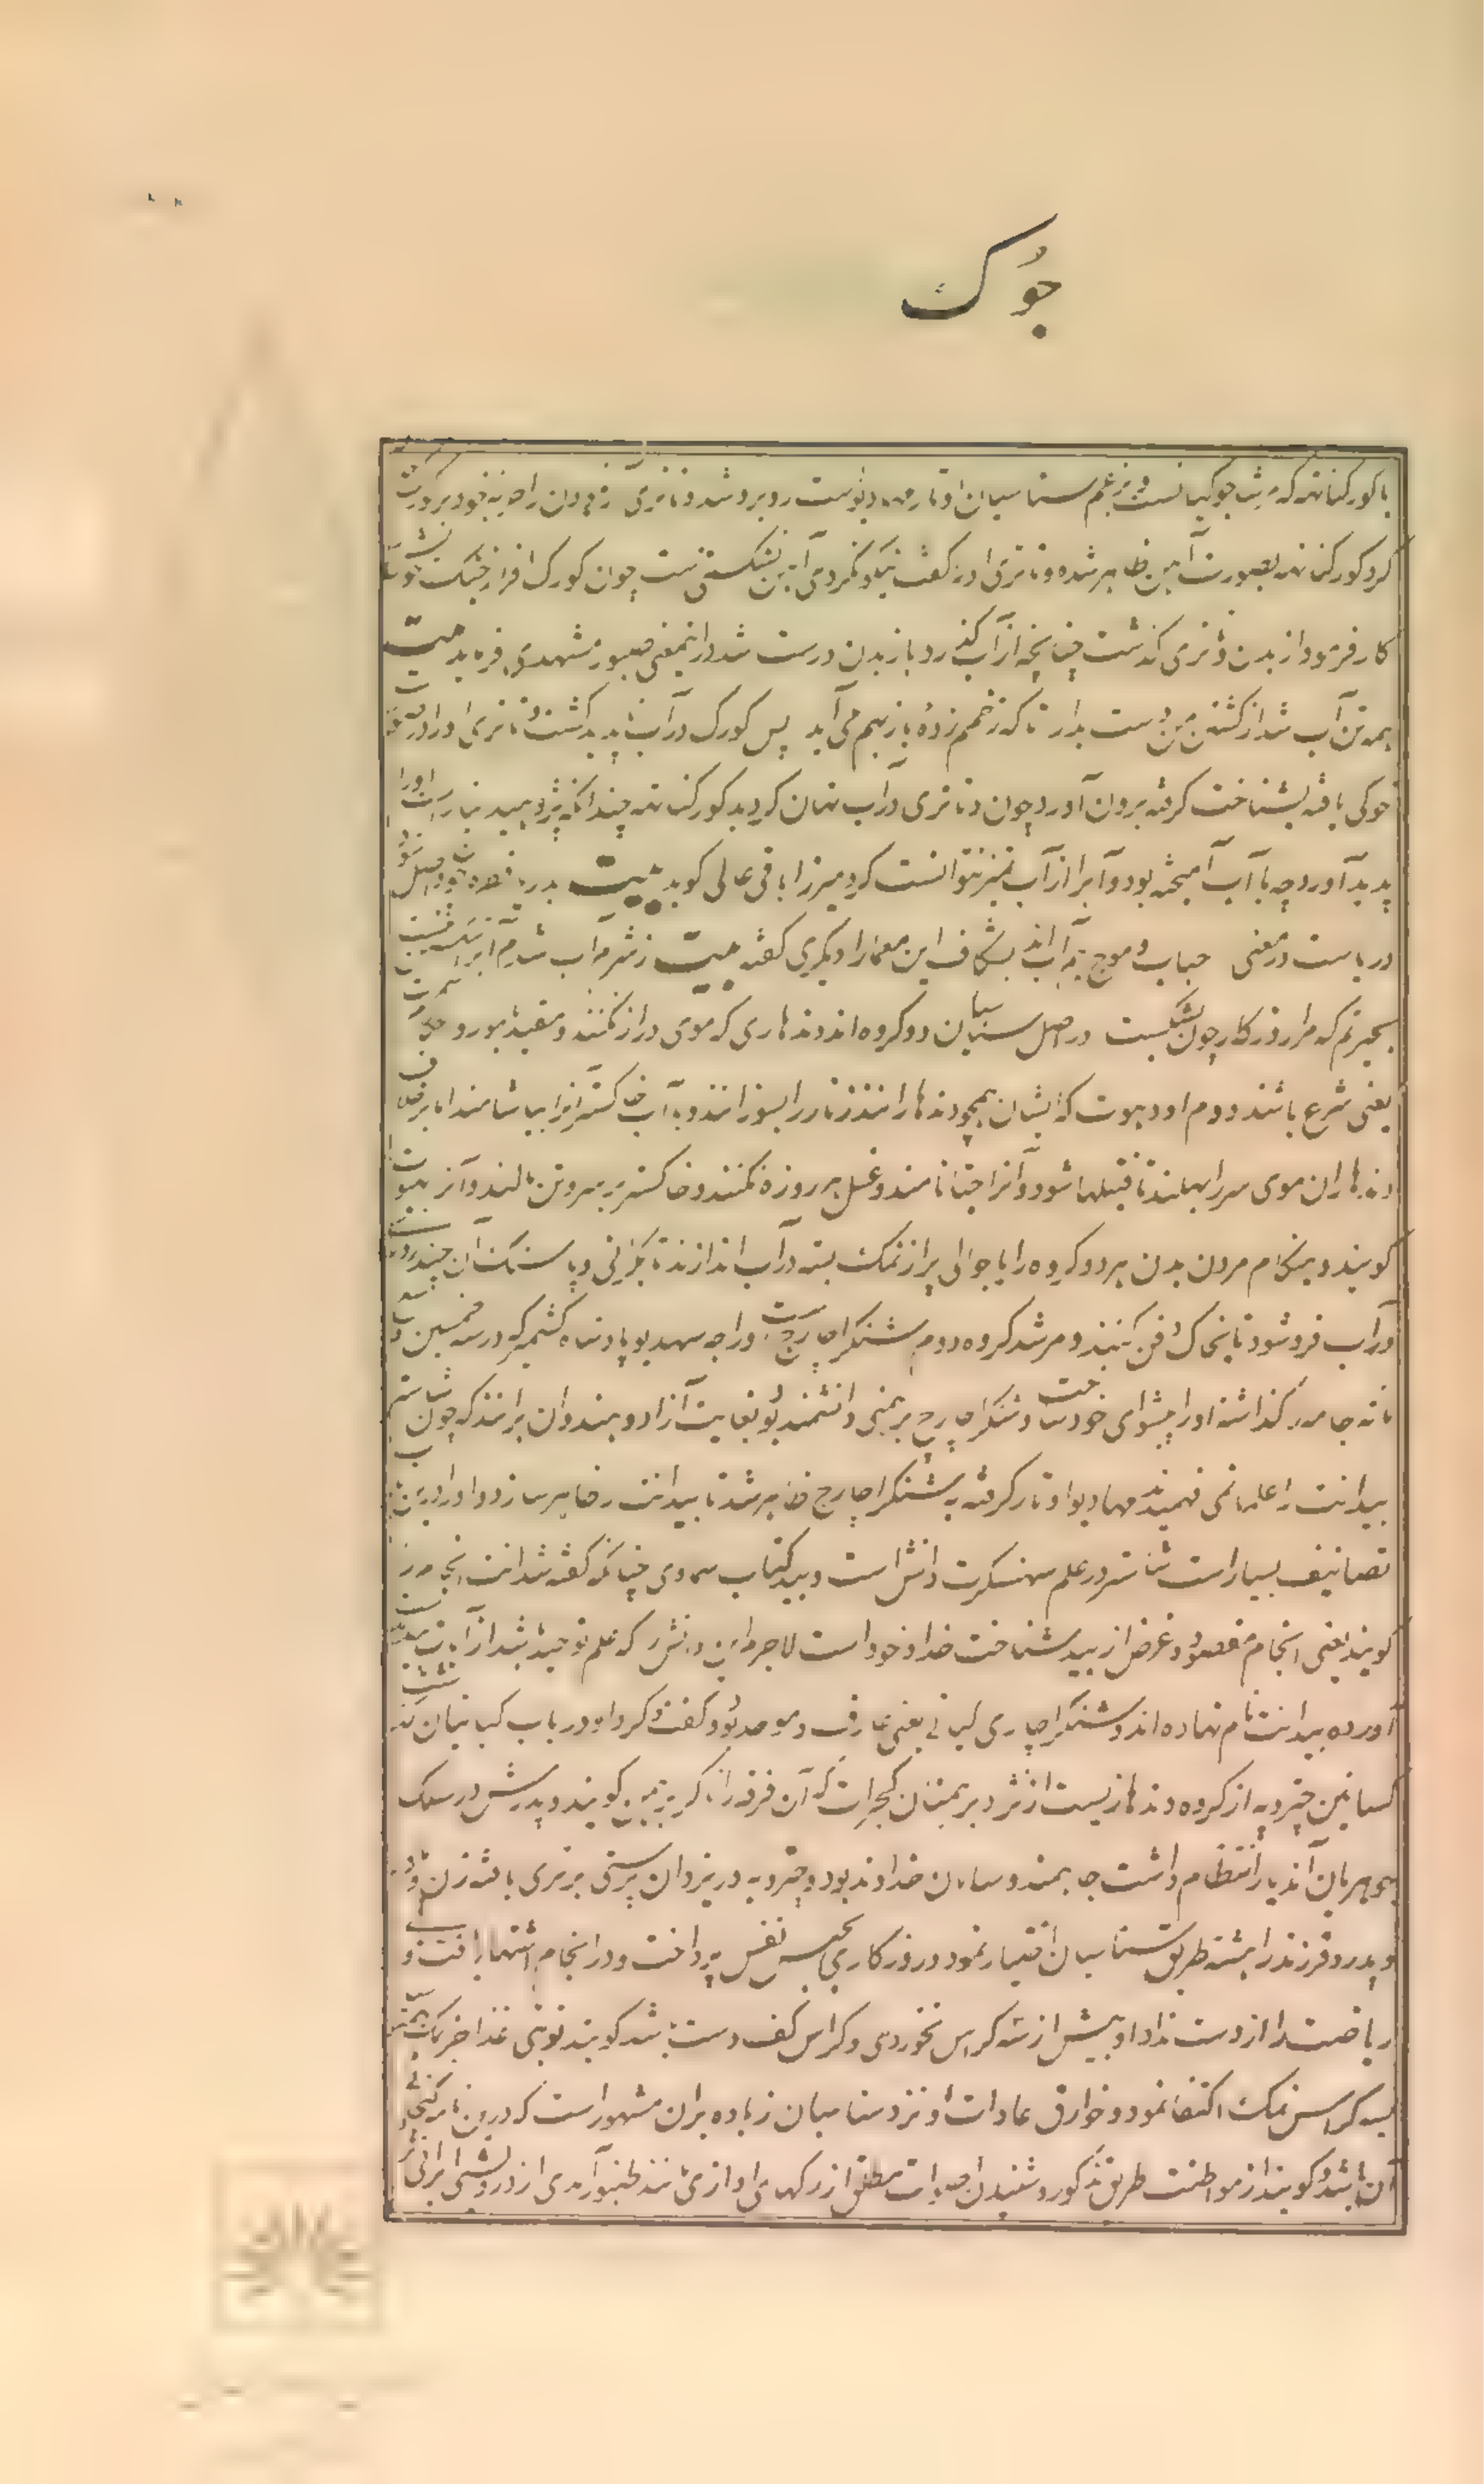 جوک
با کورکناته که مرشد جوکیانست و بزعم سناسیان اوتار مهادیوست روبرو شد دتاتری زخم بران راجه بود
کرد کورکناته بصورت آهن ظاهر شده دتاتری او را گفت نیکو نکردی آهن شکستنیست چون کورک افزار جنگ
کار فرمود از بدن دتاتری گذشت چنانچه از آب گذرد باز بدن درست شد ازینمعنی صبوری مشهدی فرماید بیت
همه تن آب شد از کشتن من دست بدار تا که زخمم زده باز بهم می آید پس کورک در آب ناپدید گشت دتاتری او را در
غوکی یافته بشناخت گرفته برون آورد چون دتاتری در آب نهان گردید کورکناته چندانکه پژوهید نیارست او را
پدید آورد چه با آب آمیخته بود و آب را از آب تمیز نتوانست کرد میرزا باقی عالی گوید بیت بدریا قطره چون واصل شود
دریاست در معنی حباب و موج بر آب اند بشکاف این معما را دیگری گفته بیت ز شرم آب شدم آب را شکستی نیست
بحیرتم که مرا روزگار چون بشکست در اصل سناسیان دو گروه اند دندهاری که موی دراز نکنند و مقید بامور
یعنی شرع باشند دوم اودهوت که ایشان همچو دندهاران زنار را بسوزانند و به آب خاکستر آنرا بیاشامند اما برخلاف
دندهاران موی سر را بهلند تا فتیلها شود و آنرا جتا نامند و غسل هر روزه نکنند و خاکستر بر سر و تن مالند و آنرا ببهوت
گویند و بهنگام مردن بدن هر دو گروه را با جوالی پر از نمک بسته در آب اندازند تا بگرانی و پاسنگ آن چند روز
در آب فرو شود تا بخاک دفن کنند و مرشد گروه دوم شنکراچارج است و راجه سهدیو پادشاه کشمیر که در سنه خمسین
مائه جامه گذاشته او را پیشوای خود ساخت و شنکراچارج برهمنی دانشمند بود بغایت آزاد و هندوان برانند که چون شاستر
بیدانت را علما نمی فهمیدند مهادیو اوتار گرفته به شنکراچارج ظاهر شد تا بیدانت را ظاهر سازد و او را درین
تصانیف بسیار است شاستر در علم سهنسکرت دانش است و بید کتاب سماوی چنانکه گفته شد انت انجام را
گویند یعنی انجام مقصود و غرض از بید شناخت خدا و خود است لاجرم این دانش را که علم توحید باشد از آیات بید
آورده بیدانت نام نهاده اند و شنکراچاری گیانی یعنی عارف و موحد بود و گفت و کردار او در باب گیانیان گذشت
گسائین چتروپه از گروه دندهاریست از نژاد برهمنان گجرات که آن فرقه را ناگر برهمن گویند و پدرش در سلک
جوهریان آندیار انتظام داشت چه بهند و سامان خداوند بود و چتروپه در یزدان پرستی برتری یافته زن
و پدر و فرزند را هشته طریق سناسیان اختیار نمود و روزگاری بحبس نفس پرداخت و در انجام اشتهار یافت و
ریاضت را از دست نداد او بیش از سه کراس نخوردی و کراس کف دست باشد گویند نوبتی غذا جز نمک
بسه کراس نمک اکتفا نمود و خوارق عادات او نزد سناسیان زیاده بران مشهور است که درین نامه گنجائی
آن باشد گویند از مواظبت طریق مذکور و شنیدن اصوات مطلق از رگهای او آوازی مانند طنبور آمدی از درویشی ایرانی